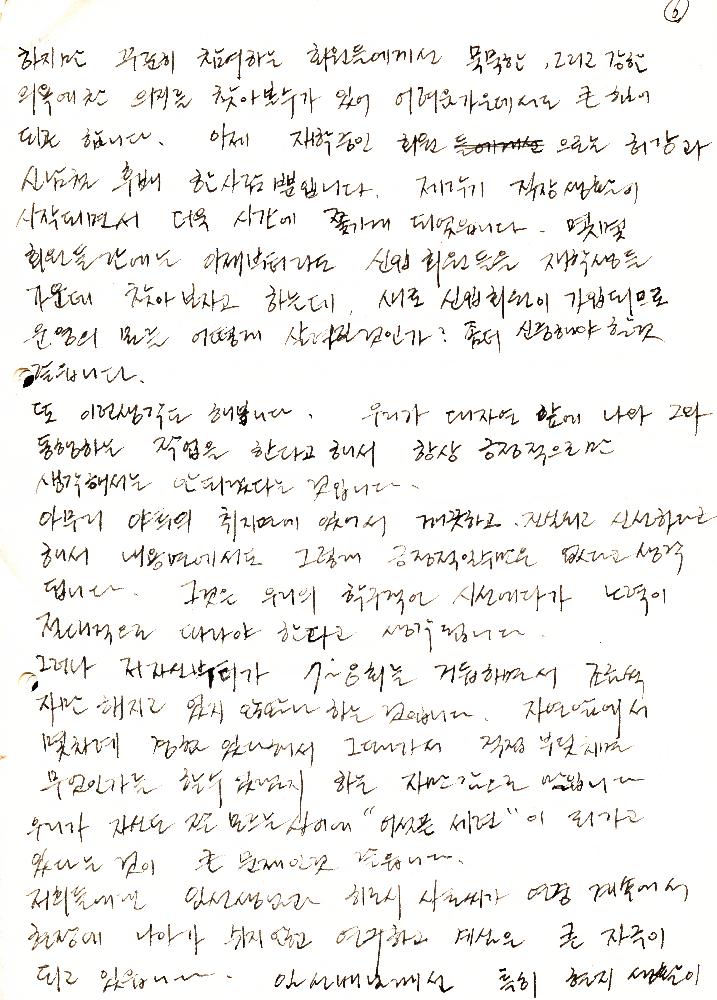 6
하지만 꾸준히 참여하는 회원들에게선 묵묵한, 그리고 강한
의욕에찬 의지를 찾아볼수가 있어 어려운가운데서도 큰 힘이
되곤 합니다. 이제 재학중인 회원 들에게선 으로는 허강과
신남철 후배 한사람뿐입니다. 제각기 직장생활이
시작되면서 더욱 시간에 쫓기게 되었읍니다. 몇몇
회원들간에는 이제부터라도 신입회원들을 재학생들
가운데 찾아보자고 하는데, 새로 신입회원이 가입되므로
운영의 묘를 어떻게 살려질것인가? 좀더 신중해야 할것
같읍니다.
또 이런생각도 해봅니다. 우리가 대자연 앞에 나와 그와
동행하는 작업을 한다고 해서 항상 긍정적으로만
생각해서는 안되겠다는 것입니다.
아무리 야투의 취지면에 있어서 깨끗하고, 진실되고 신선하다고
해서 내용면에서도 그렇게 긍정적일수만은 없다고 생각
됩니다. 그것은 우리의 학구적인 시선에다가 노력이
절대적으로 따라야 한다고 생각됩니다.
그러나 저자신부터가 7~8회를 거듭하면서 조금씩
자만해지고 있지 않았나 하는 것입니다. 자연앞에서
몇차례 경험 있다해서 그때가서 직접 부딪치면
무엇인가는 할수 있겠지 하는 자만감으로 말입니다
우리가 자신도 잘 모르는사이에 "어설픈 세련"이 되가고
있다는 것이 큰 문제인것 같읍니다.
저희들에겐 임선생님과 히로시 사올씨가 여정 계속에서
현장에 나아가 쉬지않고 연구하고 계심은 큰 자극이
되고 있읍니다. 임선배님께선 특히 현지 생활이